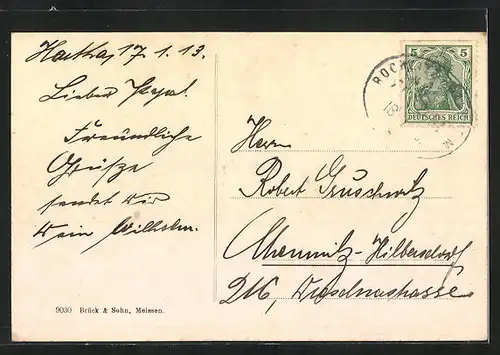 Hartha, 17.1.13.
Lieber Papa!
Freundliche
Grüße
sendet Dir
Dein Wilhelm.
9030 Brück & Sohn, Meissen.
5 5
DEUTSCHES REICH
ROCH
Herrn
Robert Gruschwitz
Chemnitz-Hilbersdorf
216, Dresdnerstrasse